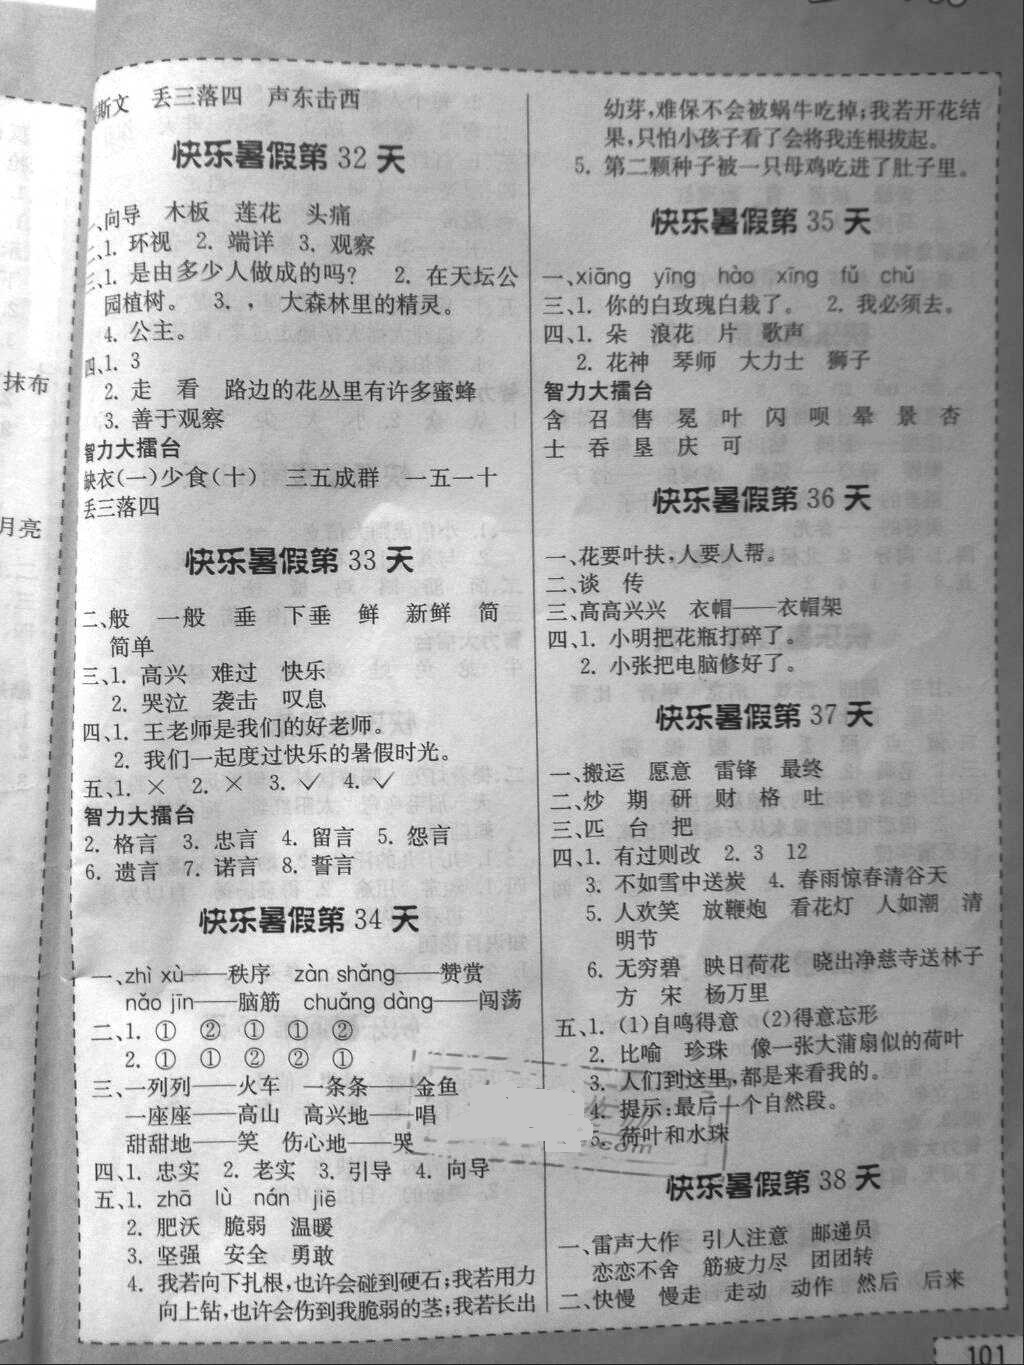 斯文 丢三落四 声东击西
快乐暑假第 32 天
一、向导 木板 莲花 头痛
二、1. 环视 2. 端详 3. 观察
三、1. 是由多少人做成的吗? 2. 在天坛公
园植树。 3. , 大森林里的精灵。
4. 公主。
四、1. 3
2. 走 看 路边的花丛里有许多蜜蜂
3. 善于观察
智力大擂台
缺衣(一)少食(十) 三五成群 一五一十
丢三落四
快乐暑假第 33 天
二、般 一般 垂 下垂 鲜 新鲜 简
简单
三、1. 高兴 难过 快乐
2. 哭泣 袭击 叹息
四、1. 王老师是我们的好老师。
2. 我们一起度过快乐的暑假时光。
五、1. × 2. × 3. ✓ 4. ✓
智力大擂台
2. 格言 3. 忠言 4. 留言 5. 怨言
6. 遗言 7. 诺言 8. 誓言
快乐暑假第 34 天
一、zhì xù——秩序 zàn shǎng——赞赏
nǎo jīn——脑筋 chuǎng dàng——闯荡
二、1. ① ② ① ① ②
2. ① ① ② ② ①
三、一列列——火车 一条条——金鱼
一座座——高山 高兴地——唱
甜甜地——笑 伤心地——哭
四、1. 忠实 2. 老实 3. 引导 4. 向导
五、1. zhā lù nán jiē
2. 肥沃 脆弱 温暖
3. 坚强 安全 勇敢
4. 我若向下扎根,也许会碰到硬石;我若用力
向上钻,也许会伤到我脆弱的茎;我若长出
幼芽,难保不会被蜗牛吃掉;我若开花结
果,只怕小孩子看了会将我连根拔起。
5. 第二颗种子被一只母鸡吃进了肚子里。
快乐暑假第 35 天
一、xiāng yīng hào xīng fǔ chǔ
三、1. 你的白玫瑰白栽了。 2. 我必须去。
四、1. 朵 浪花 片 歌声
2. 花神 琴师 大力士 狮子
智力大擂台
含 召 售 冕 叶 闪 呗 晕 景 杏
士 吞 垦 庆 可
快乐暑假第 36 天
一、花要叶扶,人要人帮。
二、谈 传
三、高高兴兴 衣帽——衣帽架
四、1. 小明把花瓶打碎了。
2. 小张把电脑修好了。
快乐暑假第 37 天
一、搬运 愿意 雷锋 最终
二、炒 期 研 财 格 吐
三、匹 台 把
四、1. 有过则改 2. 3 12
3. 不如雪中送炭 4. 春雨惊春清谷天
5. 人欢笑 放鞭炮 看花灯 人如潮 清
明节
6. 无穷碧 映日荷花 晓出净慈寺送林子
方 宋 杨万里
五、1. (1)自鸣得意 (2)得意忘形
2. 比喻 珍珠 像一张大蒲扇似的荷叶
3. 人们到这里,都是来看我的。
4. 提示:最后一个自然段。
5. 荷叶和水珠
快乐暑假第 38 天
一、雷声大作 引人注意 邮递员
恋恋不舍 筋疲力尽 团团转
二、快慢 慢走 走动 动作 然后 后来
101
抹布
月亮